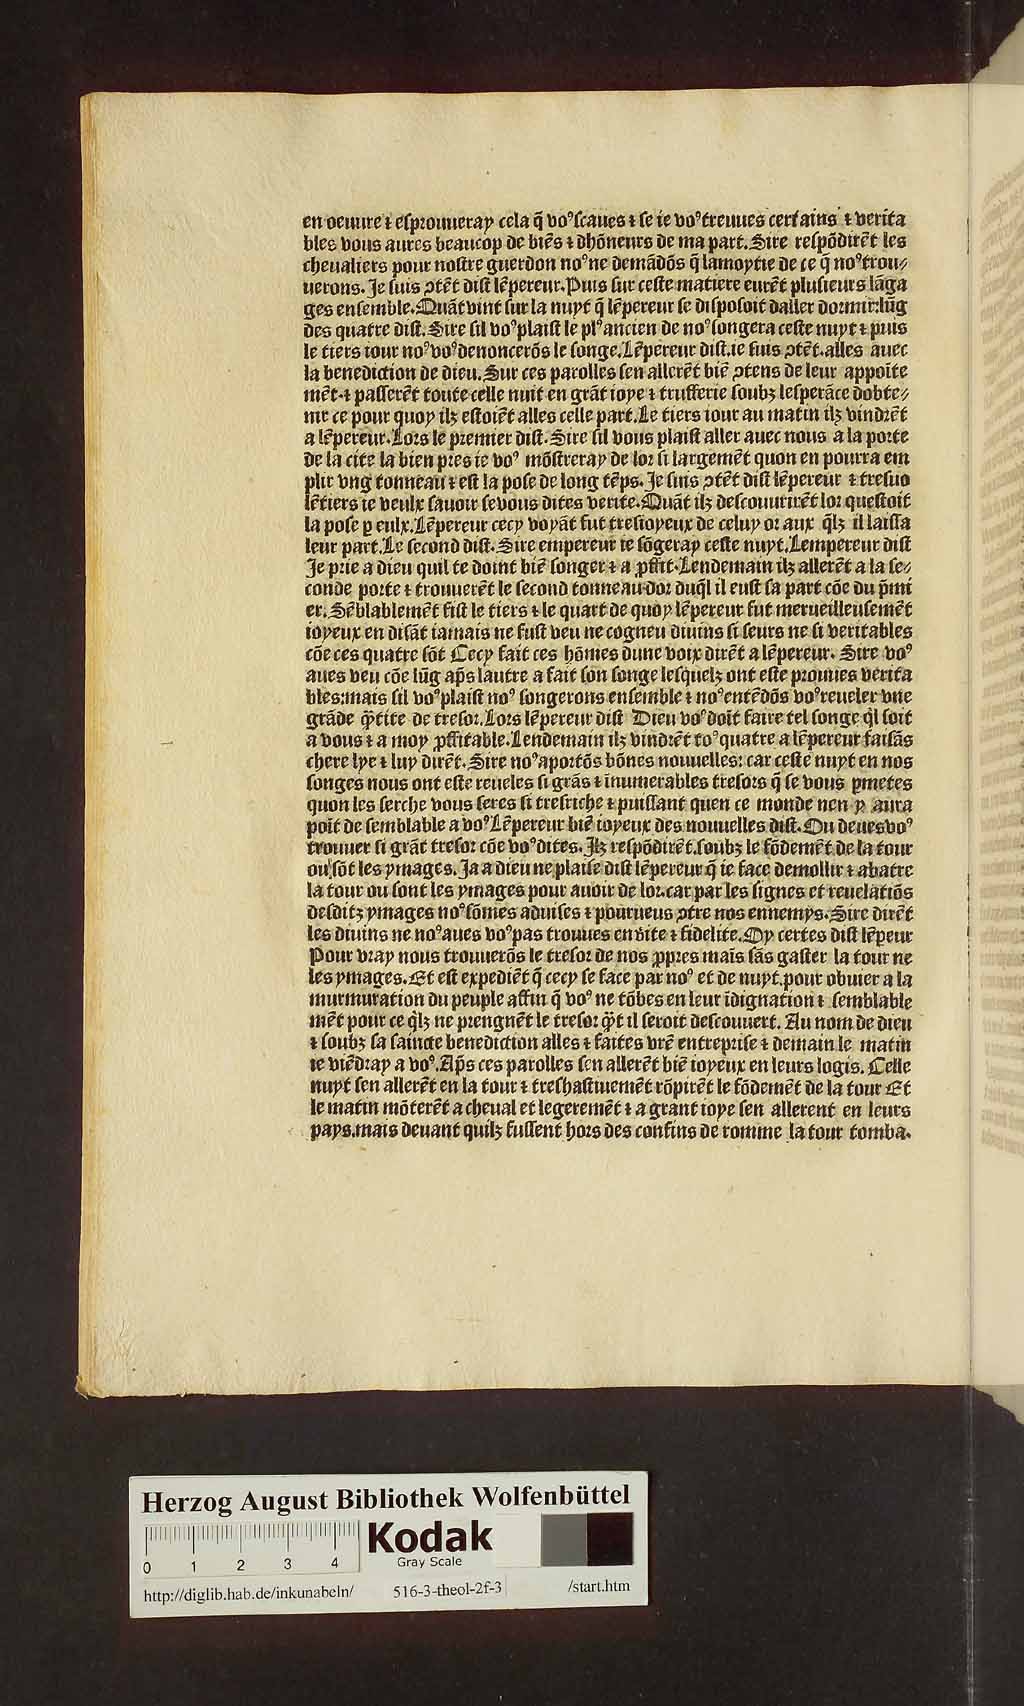 en oeuure ⁊ esprouueray cela q̄ voꝰ scaues ⁊ se ie voꝰ treuues certains ⁊ verita
bles vous aures beaucop de biēs ⁊ dhōneurs de ma part. Sire respōdirēt les
cheualiers pour nostre guerdon noꝰ ne demādōs q̄ lamoytie de ce q̄ noꝰ trou⸗
uerons. Je suis ↄtēt dist lēpereur. Puis sur ceste matiere eurēt plusieurs lāga
ges ensemble. Quāt vint sur la nuyt q̄ lēpereur se disposoit daller dormir: lūg
des quatre dist. Sire sil voꝰ plaist le plꝰ ancien de noꝰ songera ceste nuyt ⁊ puis
le tiers iour noꝰ voꝰ denoncerōs le songe. Lēpereur dist. ie suis ↄtēt. alles auec
la benediction de dieu. Sur ces parolles sen allerēt biē ↄtens de leur appoīte
mēt. ⁊ passerēt toute celle nuit en grāt ioye ⁊ trufferie soubz lesperāce dobte⸗
nir ce pour quoy ilz estoiēt alles celle part. Le tiers iour au matin ilz vindrēt
a lēpereur. Lors le premier dist. Sire sil vous plaist aller auec nous a la porte
de la cite la bien pres ie voꝰ mōstreray de lor si largemēt quon en pourra em
plir vng tonneau ⁊ est la pose de long tēps. Je suis ↄtēt dist lēpereur ⁊ tresuo
lētiers ie veulx sauoir se vous dites verite. Quāt ilz descouurirēt lor questoit
la pose ꝑ eulx. Lēpereur cecy voyāt fut tresioyeux de celuy or aux q̄lz il laissa
leur part. Le second dist. Sire empereur ie sōgeray ceste nuyt. Lempereur dist
Je prie a dieu quil te doint biē songer ⁊ a ꝓffit. Lendemain ilz allerēt a la se⸗
conde porte ⁊ trouuerēt le second tonneau dor duq̄l il eust sa part cōe du p̄mi
er. Sēblablemēt fist le tiers ⁊ le quart de quoy lēpereur fut merueilleusemēt
ioyeux en disāt iamais ne fust veu ne cogneu diuins si seurs ne si veritables
cōe ces quatre sōt Cecy fait ces hōmes dune voix dirēt a lēpereur. Sire voꝰ
aues veu cōe lūg ap̄s lautre a fait son songe lesquelz ont este prouues verita
bles: mais sil voꝰ plaist noꝰ songerons ensemble ⁊ noꝰ entēdōs voꝰ reueler vne
grāde q̄̄tite de tresor. Lors lēpereur dist Dieu voꝰ doīt faire tel songe q̄l soit
a vous ⁊ a moy ꝓffitable. Lendemain ilz vindrēt toꝰ quatre a lēpereur faisās
chere lye ⁊ luy dirēt. Sire noꝰ aportōs bōnes nouuelles: car ceste nuyt en nos
songes nous ont este reueles si grās ⁊ īnumerables tresors q̄ se vous ꝑmetes
quon les serche vous seres si tresriche ⁊ puissant quen ce monde nen y aura
poīt de semblable a voꝰ Lēpereur biē ioyeux des nouuelles dist. Ou deues voꝰ
trouuer si grāt tresor cōe voꝰ dites. Jlz respōdirēt. soubz le fōdemēt de la tour
ou sōt les ymages. Ja a dieu ne plaise dist lēpereur q̄ ie face demollir ⁊ abatre
la tour ou sont les ymages pour auoir de lor. car par les signes et reuelatiōs
desditz ymages noꝰ sōmes aduises ⁊ pourueus ↄtre nos ennemys. Sire dirēt
les diuins ne noꝰ aues voꝰ pas trouues en v̄ite ⁊ fidelite. Oy certes dist lēpeur
Pour vray nous trouuerōs le tresor de nos ꝓpres mais sās gaster la tour ne
les ymages. Et est expediēt q̄ cecy se face par noꝰ et de nuyt. pour obuier a la
murmuration du peuple affin q̄ voꝰ ne tōbes en leur īdignation ⁊ semblable
mēt pour ce q̄lz ne prengnēt le tresor q̄̄t il seroit descouuert. Au nom de dieu
⁊ soubz sa saincte benediction alles ⁊ faites vr̄e entreprise ⁊ demain le matin
ie viēdray a voꝰ. Ap̄s ces parolles sen allerēt biē ioyeux en leurs logis. Celle
nuyt sen allerēt en la tour ⁊ treshastiuemēt rōpirēt le fōdemēt de la tour Et
le matin mōterēt a cheual et legeremēt ⁊ a grant ioye sen allerent en leurs
pays. mais deuant quilz fussent hors des confins de romme la tour tomba.
Herzog August Bibliothek Wolfenbüttel
Kodak
Gray Scale
0 1 2 3 4
http://diglib.hab.de/inkunabeln/ 516-3-theol-2f-3 /start.htm